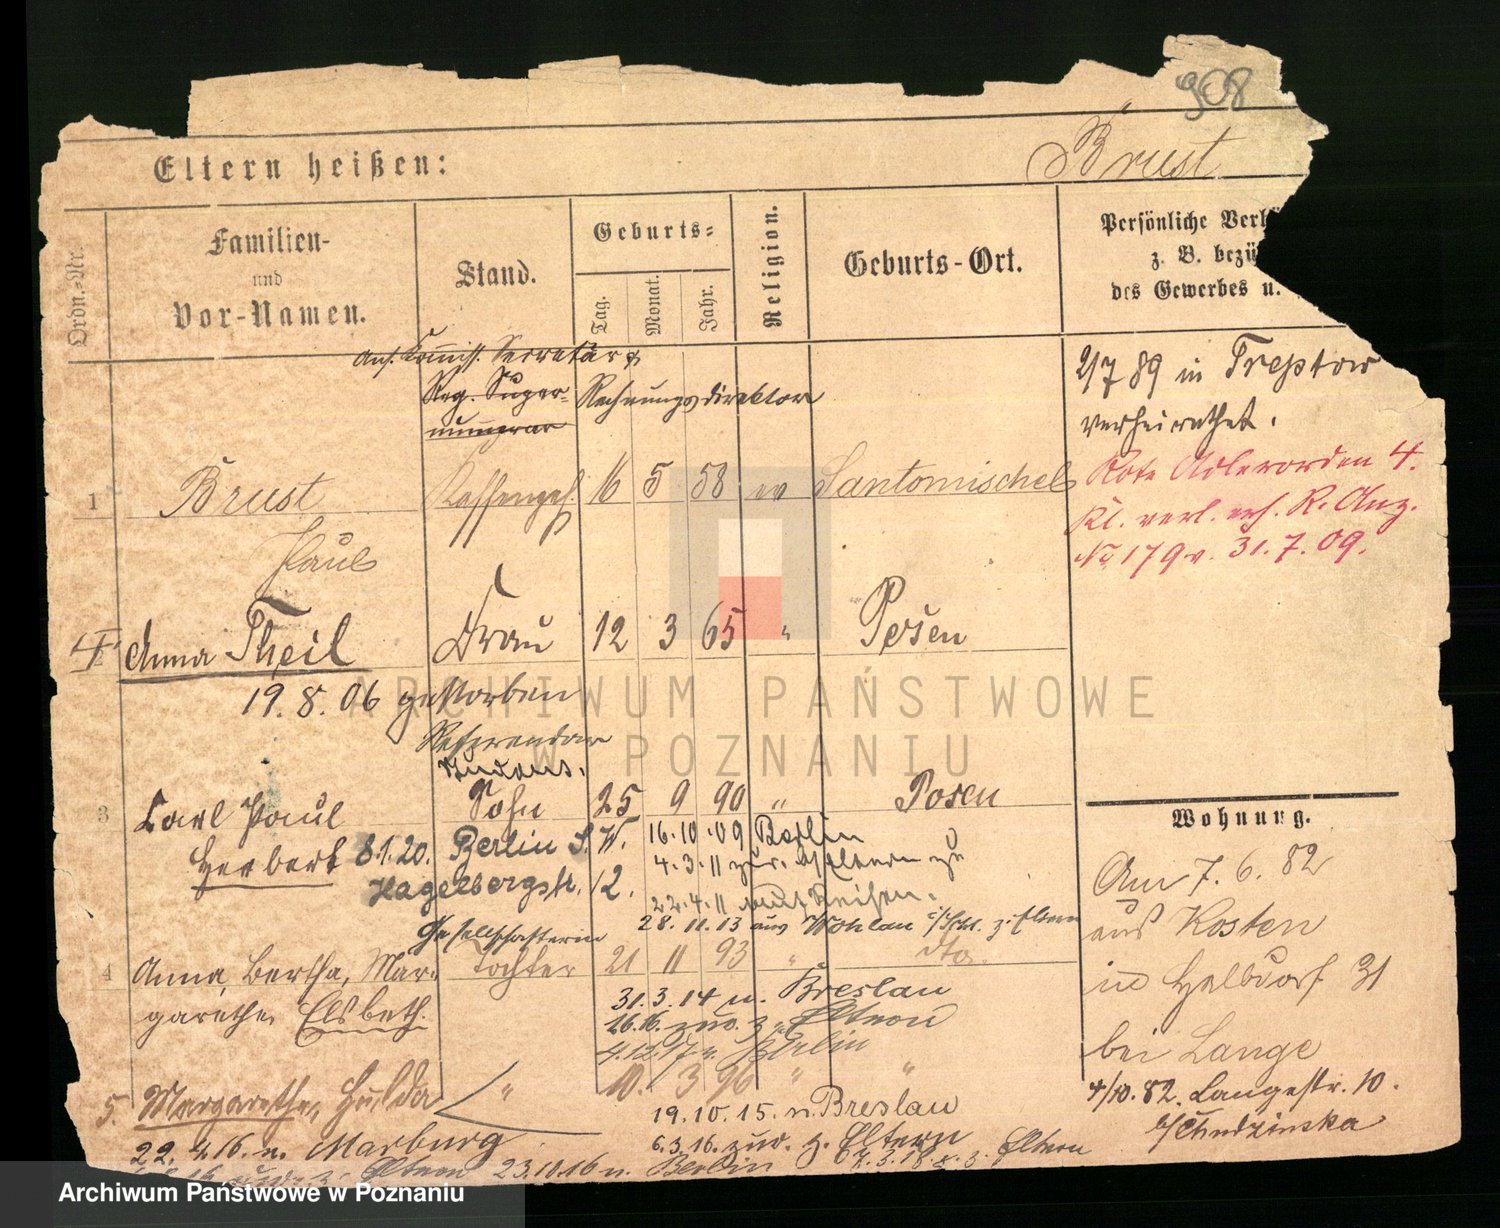 908
Eltern heißen:
Brust
Ordn.-Nr.
Familien-
und
Vor-Namen.
Stand.
Geburts-
Tag.
Monat.
Jahr.
Religion.
Geburts-Ort.
Persönliche Verhä
z. B. bezü
des Gewerbes u.
Ans. Kommiss. Secretär
Reg. Super-
numerar
Rechnungsdirektor
2/7 89 in Treptow
verheirathet.
Rote Adlerorden 4.
Kl. verl. R. Anz.
No 179 v. 31.7.09.
1 Brust Kassengeh. 16 5 58 ev Santomischel
Paul
2 Anna Theil Frau 12 3 65 " Posen
19.8.06 gestorben
Referendar
Studens.
3 Carl Paul Sohn 25 9 90 " Posen
Herbert 8.1.20. Berlin S.W. 16.10.09 Berlin
Hagelbergstr. 12.
4.3.11 zur. Eltern
22.4.11 auf Reisen.
28.11.13 aus Wohlau z. Eltern
Gesellschafterin
4 Anna, Bertha, Mar- Tochter 21 11 93 " dto.
garethe Elsbeth.
31.3.14 n. Breslau
16.16. zur. z. Eltern
4.12.17 n. Berlin
5. Margarethe, Hulda " 10. 3 96 " "
19.10.15. n. Breslau
22.4.16. n. Marburg
6.3.16. zur. z. Eltern
z. Eltern 23.10.16 n. Berlin
3.18. z. Eltern
Wohnung.
Am 7.6.82
aus Kosten
in Halbdorf 31
bei Lange
4/10.82. Langestr. 10.
b/Chudzinska
ARCHIWUM PAŃSTWOWE
W POZNANIU
Archiwum Państwowe w Poznaniu